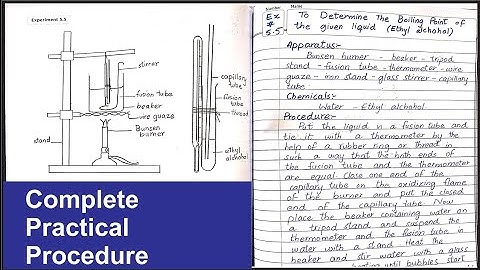 Experiment 5.5
stirrer
fusion tube
beaker
wire guaze
Bunsen
burner
stand
capillary
tube
fusion
tube
thread
ethyl
alchohol
Complete
Practical
Procedure
Number
Name
Ex
#
5.5
To Determine The Boiling Point of
the given liquid (Ethyl alchohol)
Apparatus:-
Bunsen burner - beaker - tripod
stand - fusion tube - thermometer - wire
guaze - iron stand - glass stirrer - capillary
tube.
Chemicals:-
Water - Ethyl alchohol.
Procedure:-
Put the liquid in a fusion tube and
tie it with a thermometer by the
help of a rubber ring or thread in
such a way that the both ends of
the fusion tube and the thermometer
are equal. Close one end of the
capillary tube on the oxidizing flame
of the burner and put the closed
end of the capillary tube. Now
place the beaker containing water on
a tripod stand and suspend the
thermometer and the fusion tube in
water with a stand. Heat the
beaker and stir water with a glass
heating until bubbles start